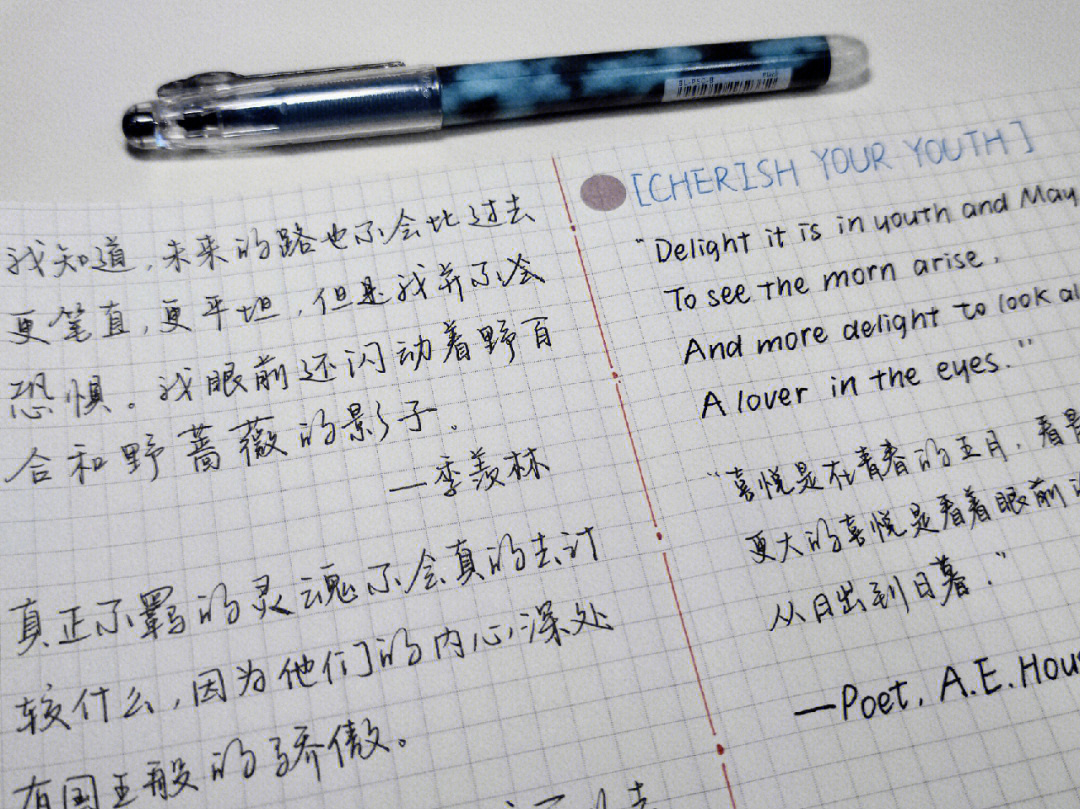 我知道，未来的路也不会比过去
更笔直，更平坦，但是我并不会
恐惧。我眼前还闪动着野百
合和野蔷薇的影子。
—季羡林
真正不羁的灵魂不会真的去计
较什么，因为他们的内心深处
有国王般的骄傲。
[CHERISH YOUR YOUTH]
"Delight it is in youth and May
To see the morn arise,
And more delight to look al
A lover in the eyes."
"喜悦是在青春的五月，看
更大的喜悦是看着眼前
从日出到日暮."
—Poet, A.E.Hou